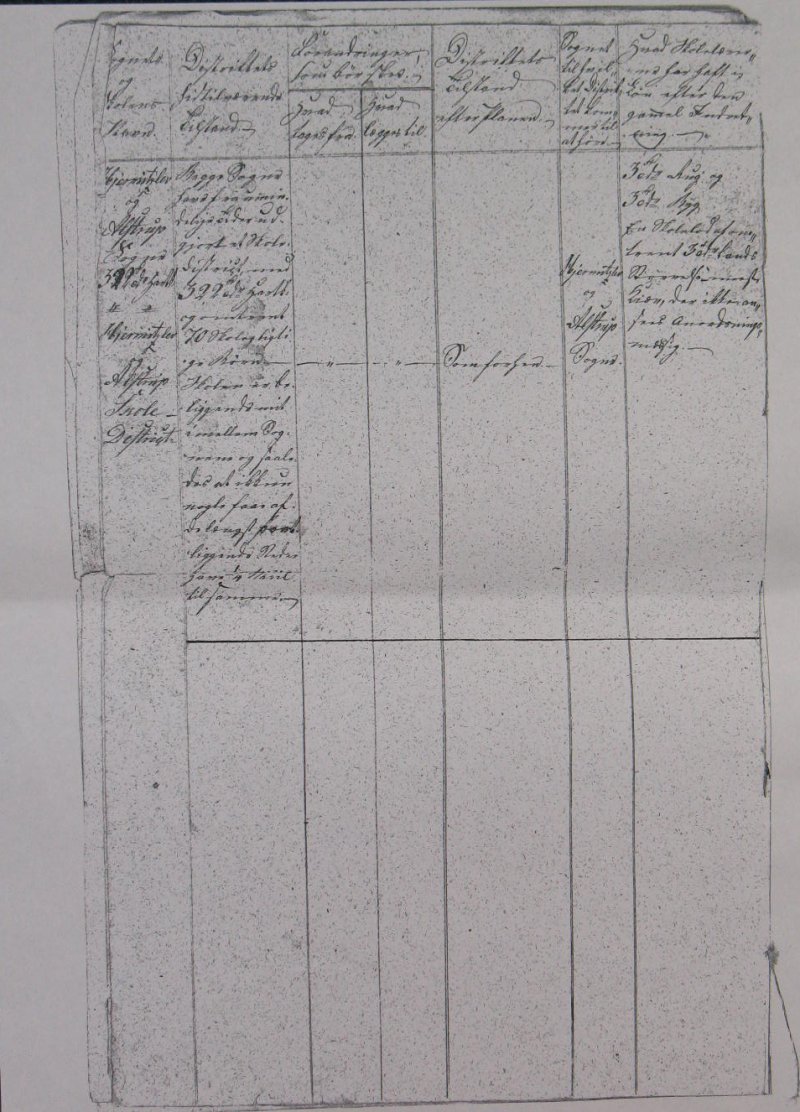 Sognets
og
Skolens
Navn.
Districtets
hidtilværende
Tilstand.
Forandringer,
som bör skee.
Hvad
tages fra
Hvad
lægges til.
Districtets
Tilstand
efter Planen.
Sognet
til hvil-
ket District
det kom-
mer til
at höre.
Hvad Skolelærer-
ne har haft i
Lön efter den
gammel Indret-
ning.
Hjermitzlev
og
Alstrup
Sogne
322
Hartk
Hjermitzlev
og
Alstrup
Skole-
District
Begge Sogne
have fra umin-
delige Tider ud-
gjort et Skole-
District, med
322 Hartk.
og omtrent
70 Skolepligti-
ge Börn
Skolen er be-
liggende mit
imellem Sog-
nene og saale-
des at ikkun
nogle faae af
de længst fra-
liggende Steder
have 1/4 Miil
til samme.
Som forhen
Hjermitzlev
og
Alstrup
Sogne.
3 Rug og
3 Byg
En Skolelod af om-
trent 3 Lands
der ikke an-
sees Anordnings-
mæssig.